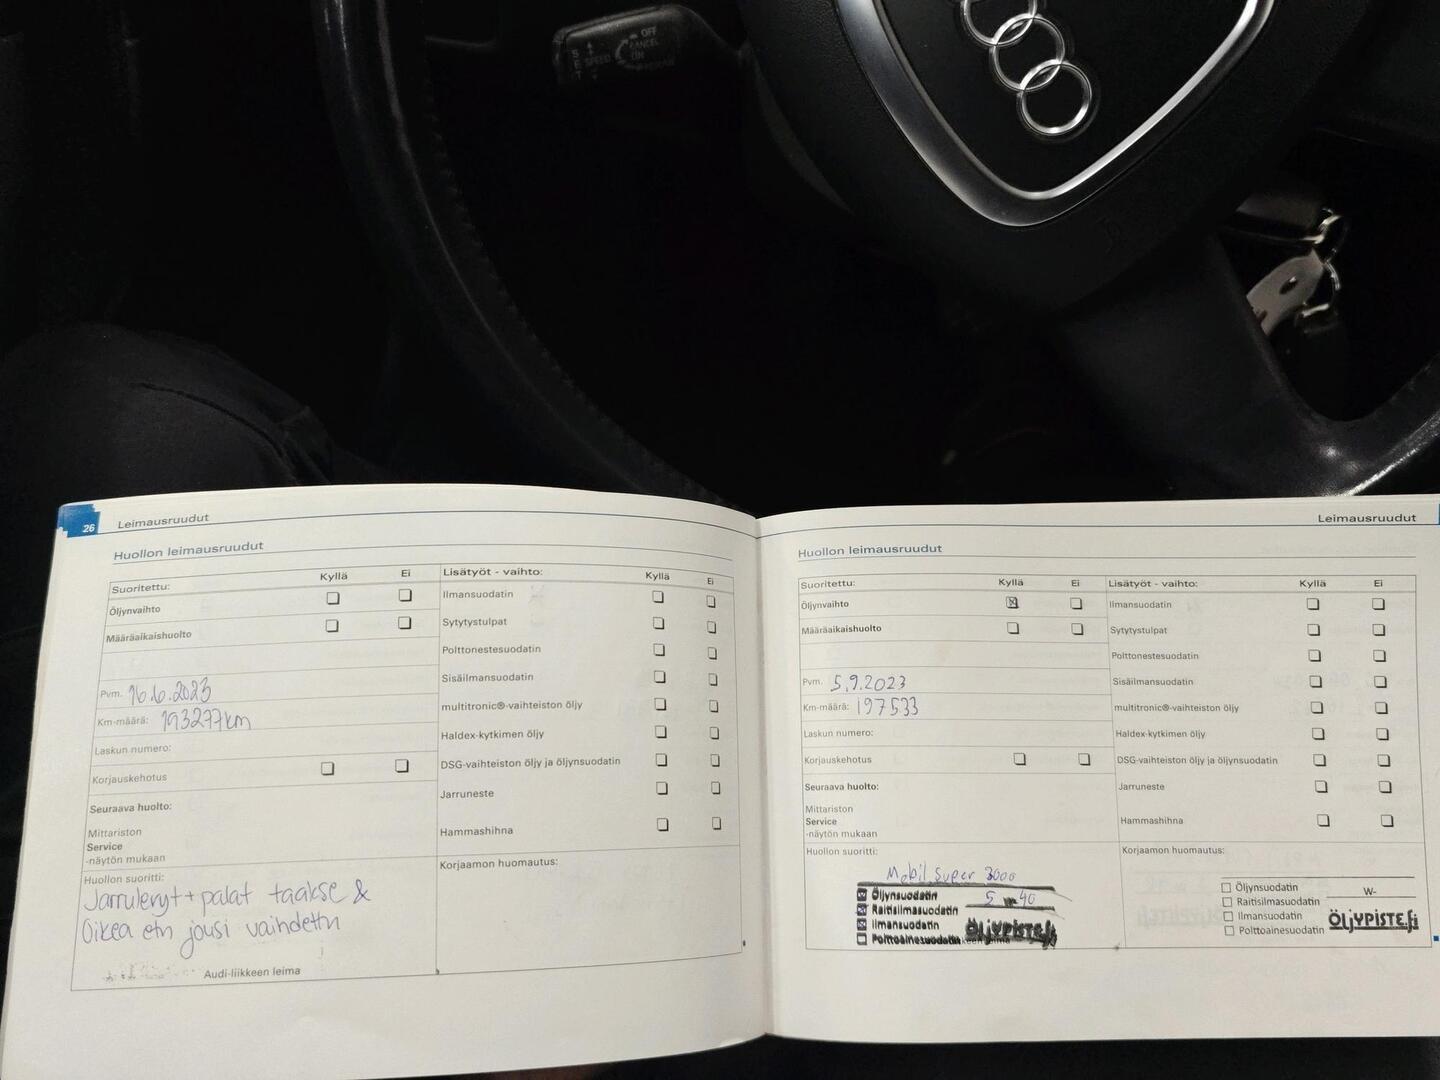 OFF
CANCEL
ON
SPEED
SET
26
Leimausruudut
Huollon leimausruudut
Suoritettu: Kyllä Ei
Öljynvaihto
Määräaikaishuolto
Pvm. 16.6.2023
Km-määrä: 193277km
Laskun numero:
Korjauskehotus
Seuraava huolto:
Mittariston
Service
-näytön mukaan
Huollon suoritti:
Jarrulevyt + palat taakse &
Oikea etn jousi vaihdettn
Audi-liikkeen leima
Lisätyöt - vaihto: Kyllä Ei
Ilmansuodatin
Sytytystulpat
Polttonestesuodatin
Sisäilmansuodatin
multitronic®-vaihteiston öljy
Haldex-kytkimen öljy
DSG-vaihteiston öljy ja öljynsuodatin
Jarruneste
Hammashihna
Korjaamon huomautus:
Leimausruudut
Huollon leimausruudut
Suoritettu: Kyllä Ei
Öljynvaihto
Määräaikaishuolto
Pvm. 5.9.2023
Km-määrä: 197533
Laskun numero:
Korjauskehotus
Seuraava huolto:
Mittariston
Service
-näytön mukaan
Huollon suoritti:
Mobil Super 3000
Öljynsuodatin 5 W- 40
Raitisilmasuodatin
Ilmansuodatin
Polttoainesuodatin ÖLJYPISTE.fi
Lisätyöt - vaihto: Kyllä Ei
Ilmansuodatin
Sytytystulpat
Polttonestesuodatin
Sisäilmansuodatin
multitronic®-vaihteiston öljy
Haldex-kytkimen öljy
DSG-vaihteiston öljy ja öljynsuodatin
Jarruneste
Hammashihna
Korjaamon huomautus:
Öljynsuodatin W-
Raitisilmasuodatin
Ilmansuodatin
Polttoainesuodatin ÖLJYPISTE.fi